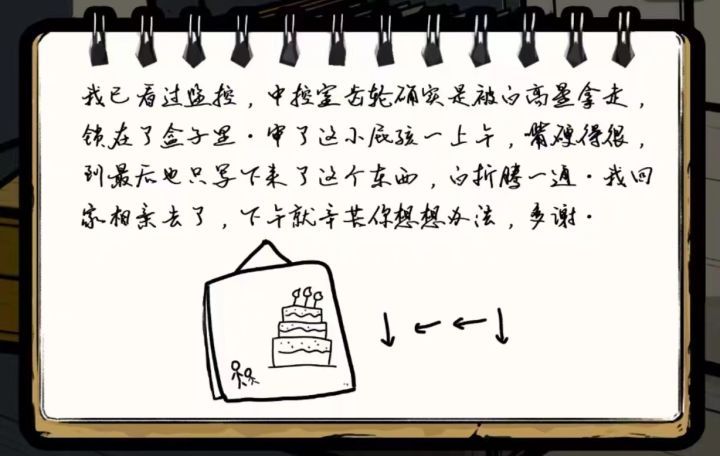 我已看过监控，中控室齿轮确实是被白高盈拿走，
锁在了盒子里．审了这小屁孩一上午，嘴硬得很，
到最后也只写下来了这个东西，白折腾一通．我回
家相亲去了，下午就辛苦你想想办法，多谢．
↓←←↓